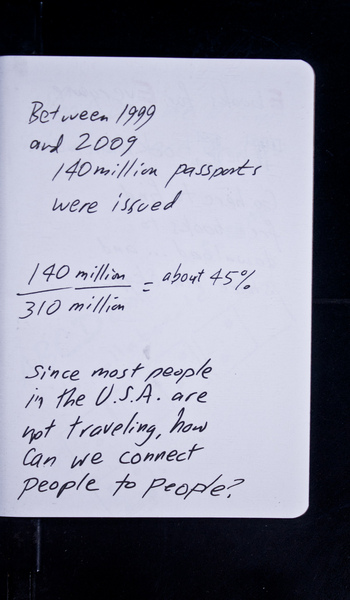 Between 1999
and 2009
140 million passports
were issued
140 million
310 million
= about 45%
Since most people
in the U.S.A. are
not traveling, how
can we connect
people to people?